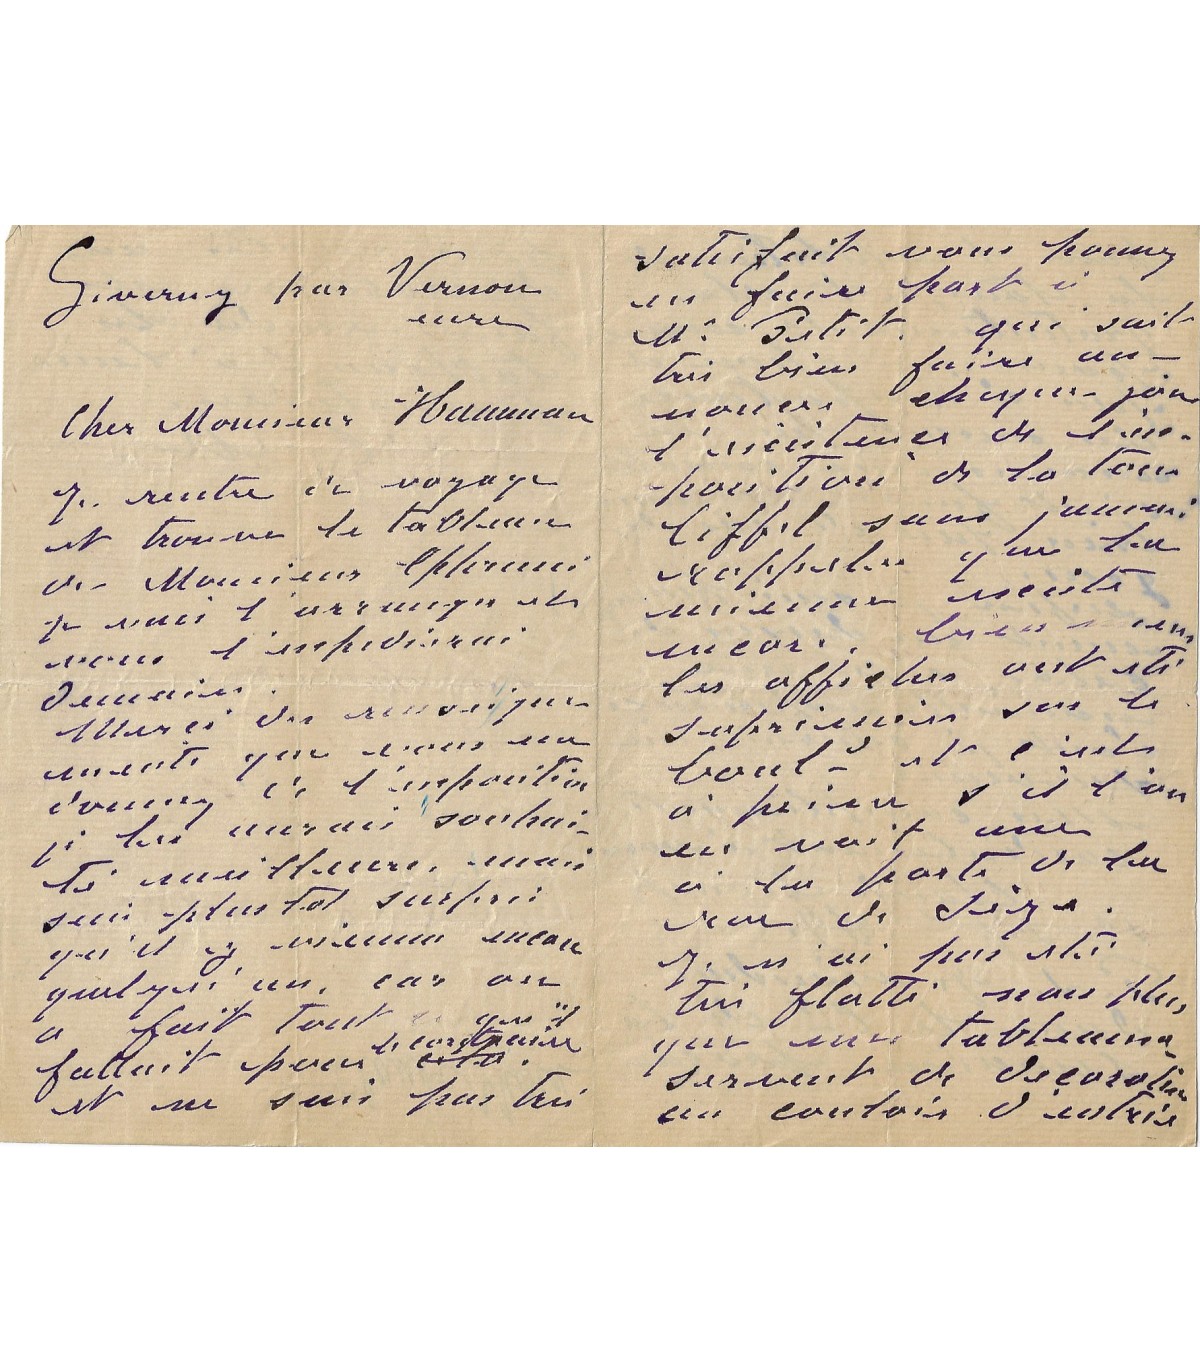 Giverny par Vernon
eure
Cher Monsieur Hauman
Je rentre de voyage
et trouve le tableau
de Monsieur
je vais l'arranger et
vous l'expedierai
demain.
Merci des renseigne-
ments que vous me
donnez de l'exposition
je les aurais souhai-
té meilleure, mais
suis plustot surpris
qu'il y vienne encore
quelqu'un, car on
a fait tout ce qu'il
fallait pour le contraire cela.
et ne suis pas très
satisfait vous pouvez
en faire part à
Mr Petit. qui sait
très bien faire an-
noncer chaque jour
l'existence de l'ex-
position de la tour
Eiffel sans jamais
rappeler que la
mienne existe
encore. bien
les affiches ont été
suprimées sur le
boul.d et c'est
à peine s'il l'on
en voit une
à la porte de la
rue de Sèze.
Je n'ai pas été
très flatté non plus,
que mes tableaux
servent de décoration
au couloir d'entrée